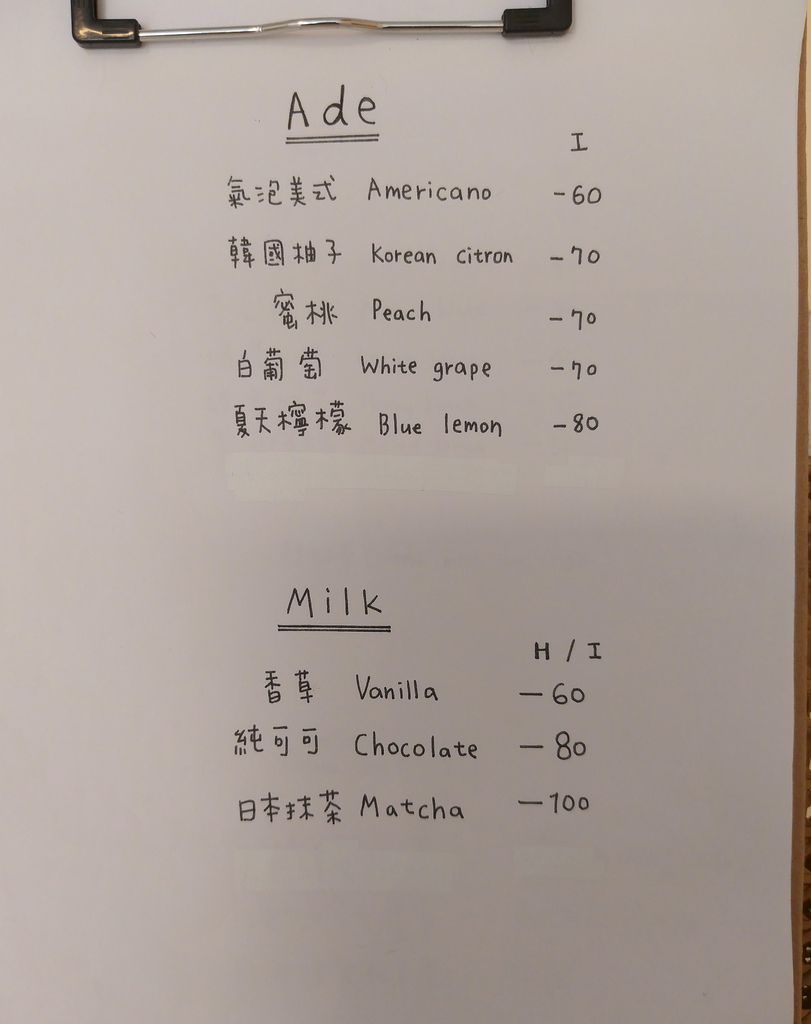 Ade
I
氣泡美式 Americano -60
韓國柚子 Korean citron -70
蜜桃 Peach -70
白葡萄 White grape -70
夏天檸檬 Blue lemon -80
Milk
H / I
香草 Vanilla -60
純可可 Chocolate -80
日本抹茶 Matcha -100